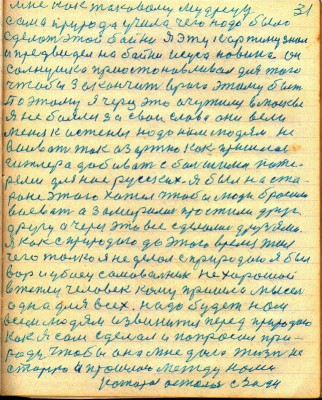 31
мне как таковому мудрецу
сама природа учила чего надо было
сделать этой байки Я эту картину знал
и предвидел на байки исуса новина он
солнушко приостонавливал для того
чтобы закончит врага этому быт
Поэтому я через это очутился в москве
Я не болел за свои слова они вели
меня к истены надо нам людям не
воиват так азартно как пришлося
гитлера добиват с большими поте-
рями для нас русских. Я был на ста-
роне этого хотел чтобы люди бросили
воеват а замерилися простили друг
другу а через это все сделались друзями.
Я как с природою до этого время жил
чего только я не делал с природою я был
вор убиец самовольник не хороший
в жизни человек кому пришла мысел
одна для всех. надо будет нам
всем людям извинится перед природою
как я сам сделал и попросил при-
роду чтобы она мне дала жизн не
старою и прошлою между нами
которая осталося сзади